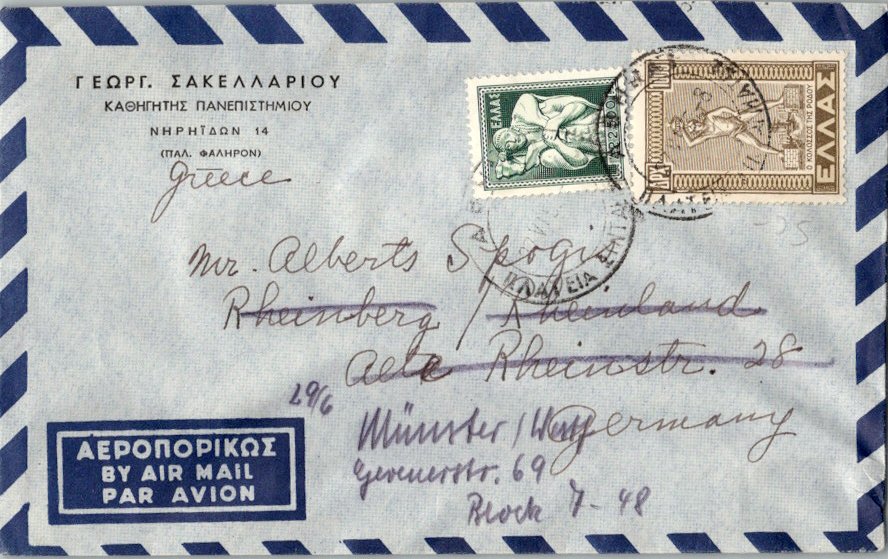 ΓΕΩΡΓ. ΣΑΚΕΛΛΑΡΙΟΥ
ΚΑΘΗΓΗΤΗΣ ΠΑΝΕΠΙΣΤΗΜΙΟΥ
ΝΗΡΗΪΔΩΝ 14
(ΠΑΛ. ΦΑΛΗΡΟΝ)
Greece
ΕΛΛΑΣ
ΕΛΛΑΣ
Ο ΚΟΛΟΣΣΟΣ ΤΗΣ ΡΟΔΟΥ
ΠΛΑΤΕΙΑ
Mr. Alberts Spogis
Rheinberg / Rheinland
Alte Rheinstr. 28
Germany
29/6
Münster/Westf
Gevenerstr. 69
Block 7-48
ΑΕΡΟΠΟΡΙΚΩΣ
BY AIR MAIL
PAR AVION